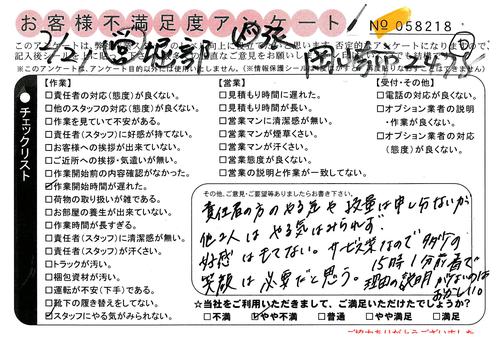 お客様不満足度アンケート
№ 058218
営 堀部
【作業】
□責任者の対応(態度)が良くない。
□他のスタッフの対応(態度)が良くない。
□作業を見ていて不安がある。
□責任者(スタッフ)に好感が持てない。
□お客様への挨拶が出来ていない。
□ご近所への挨拶・気遣いが無い。
□作業開始前の内容確認がなかった。
☑作業開始時間が遅れた。
□荷物の取り扱いが雑である。
□お部屋の養生が出来ていない。
□作業時間が長すぎる。
□責任者(スタッフ)に清潔感が無い。
□責任者(スタッフ)が汗さい。
□トラックが汚い。
□梱包資材が汚い。
□運転が不安(下手)である。
□靴下の履き替えをしてない。
☑スタッフにやる気がみられない。
チェックリスト
【営業】
□見積もり時間に遅れた。
□見積もり時間が長い。
□営業マンに清潔感が無い。
□営業マンが煙草くさい。
□営業マンが汗くさい。
□営業態度が良くない。
□営業の説明と作業が一致してない。
【受付・その他】
□電話の対応が良くない。
□オプション業者の説明
・作業が良くない。
□オプション業者の対応
(態度)が良くない。
その他、ご意見・ご要望等ありましたらお書き下さい。
責任者の方のやる足や技量は申し分ないが
他2人はやる気はみられず
好感はもてない。サービス業なので多少の
笑顔は必要だと思う。
15時1分前着で
理由の説明がないのは
おかしい。
☆当社をご利用いただきまして、ご満足いただけたでしょうか?
□不満 ☑やや不満 □普通 □やや満足 □満足
ご協力ありがとうございました